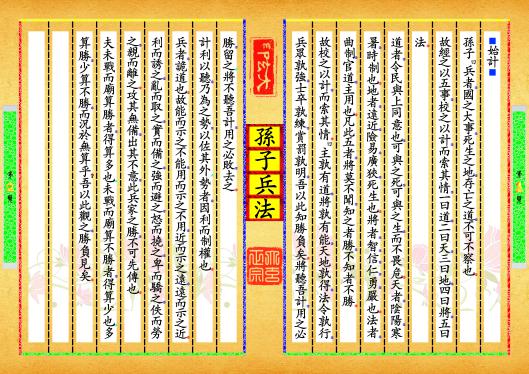 始計
孫子。兵者國之大事死生之地存亡之道不可不察也
故經之以五事校之以計而索其情一曰道二曰天三曰地四曰將五曰
法
道者令民與上同意也可與之死可與之生而不畏危天者陰陽寒
暑時制也地者遠近險易廣狹死生也將者智信仁勇嚴也法者
曲制官道主用也凡此五者將莫不聞知之者勝不知者不勝
故校之以計而索其情。主孰有道將孰有能天地孰得法令孰行
兵眾孰強士卒孰練賞罰孰明吾以此知勝負矣將聽吾計用之必
孫子兵法
勝留之將不聽吾計用之必敗去之
計利以聽乃為之勢以佐其外勢者因利而制權也
兵者詭道也故能而示之不能用而示之不用近而示之遠遠而示之近
利而誘之亂而取之實而備之強而避之怒而撓之卑而驕之佚而勞
之親而離之攻其無備出其不意此兵家之勝不可先傳也
夫未戰而廟算勝者得算多也未戰而廟算不勝者得算少也多
算勝少算不勝而況於無算乎吾以此觀之勝負見矣